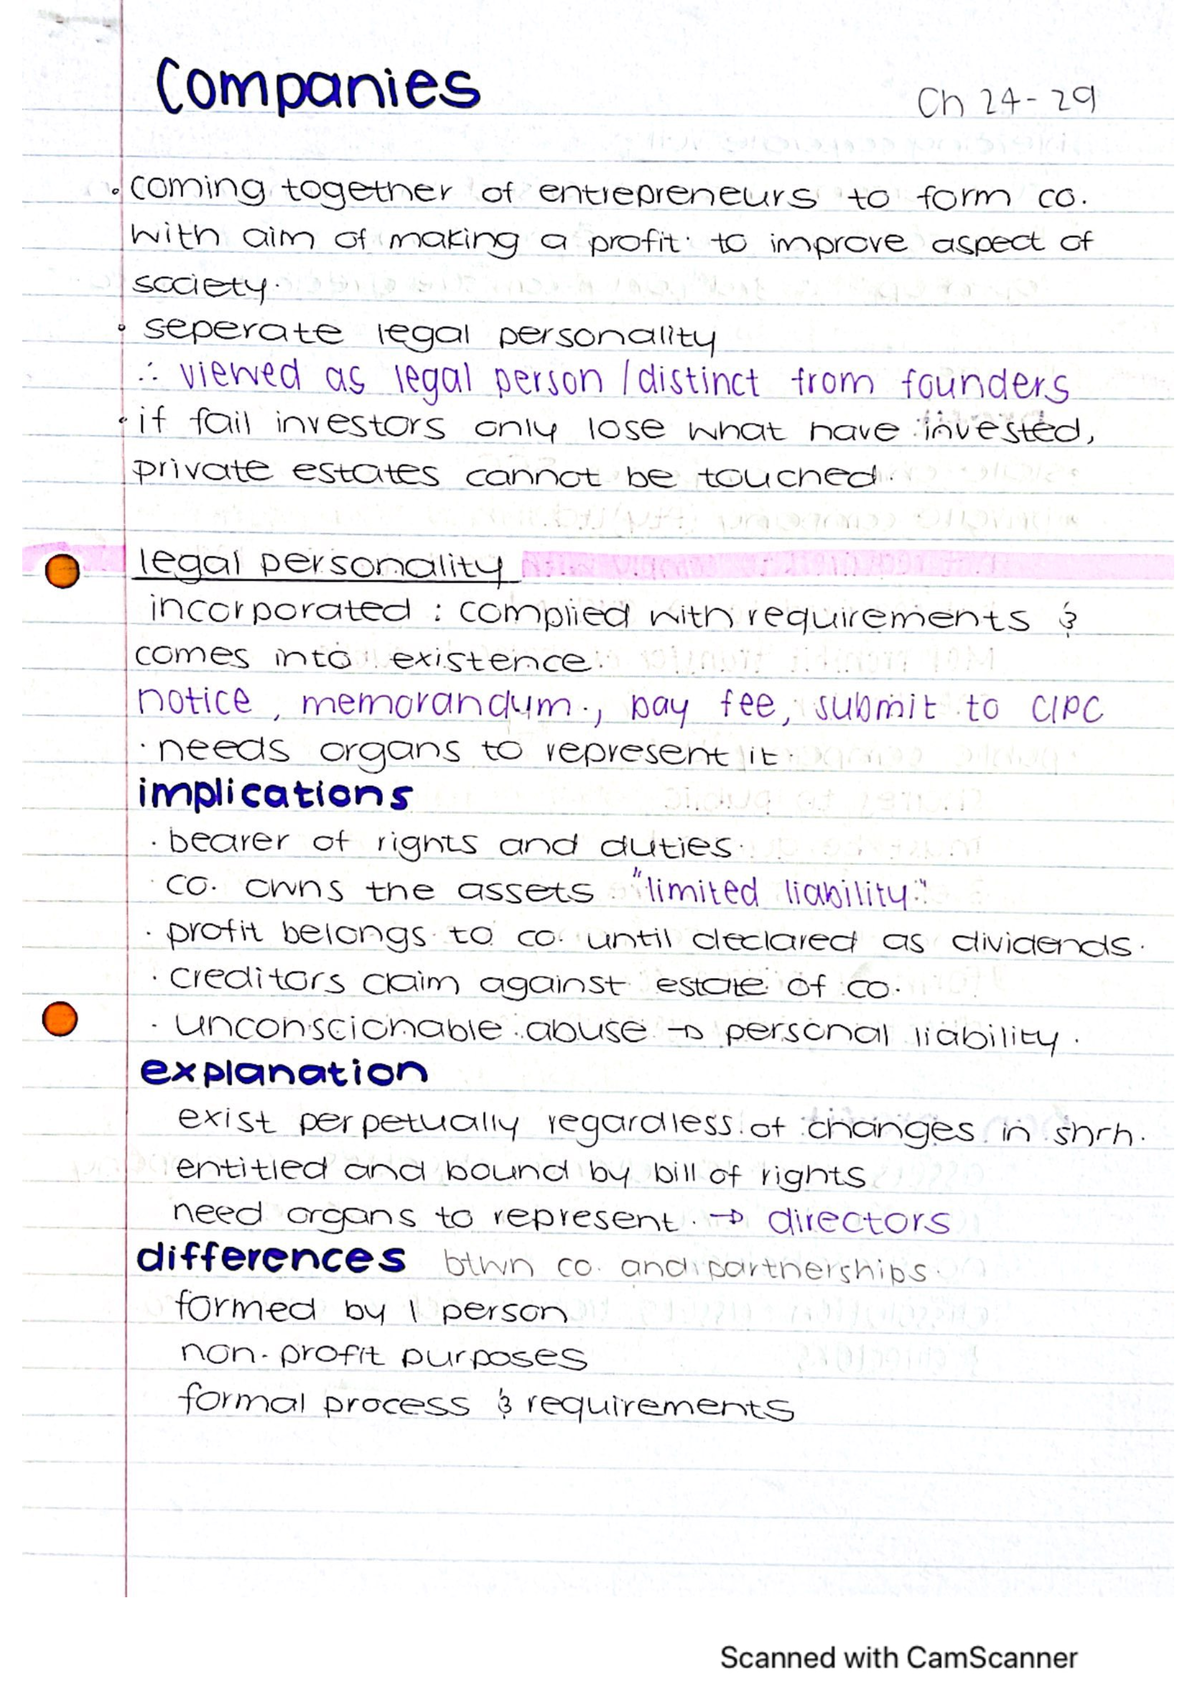 Companies
Ch 24-29
• coming together of entrepreneurs to form co.
with aim of making a profit. to improve aspect of
society.
• seperate legal personality
∴ viewed as legal person / distinct from founders
• if fail investors only lose what have invested,
private estates cannot be touched.
legal personality
incorporated : complied with requirements &
comes into existence.
notice, memorandum., pay fee, submit to CIPC
· needs organs to represent it.
implications
· bearer of rights and duties.
· co. owns the assets "limited liability"
· profit belongs to co. until declared as dividends.
· creditors claim against estate of co.
· unconscionable abuse → personal liability.
explanation
exist perpetually regardless of changes in shrh.
entitled and bound by bill of rights
need organs to represent. → directors
differences btwn co. and partnerships.
formed by 1 person
non-profit purposes
formal process & requirements
Scanned with CamScanner